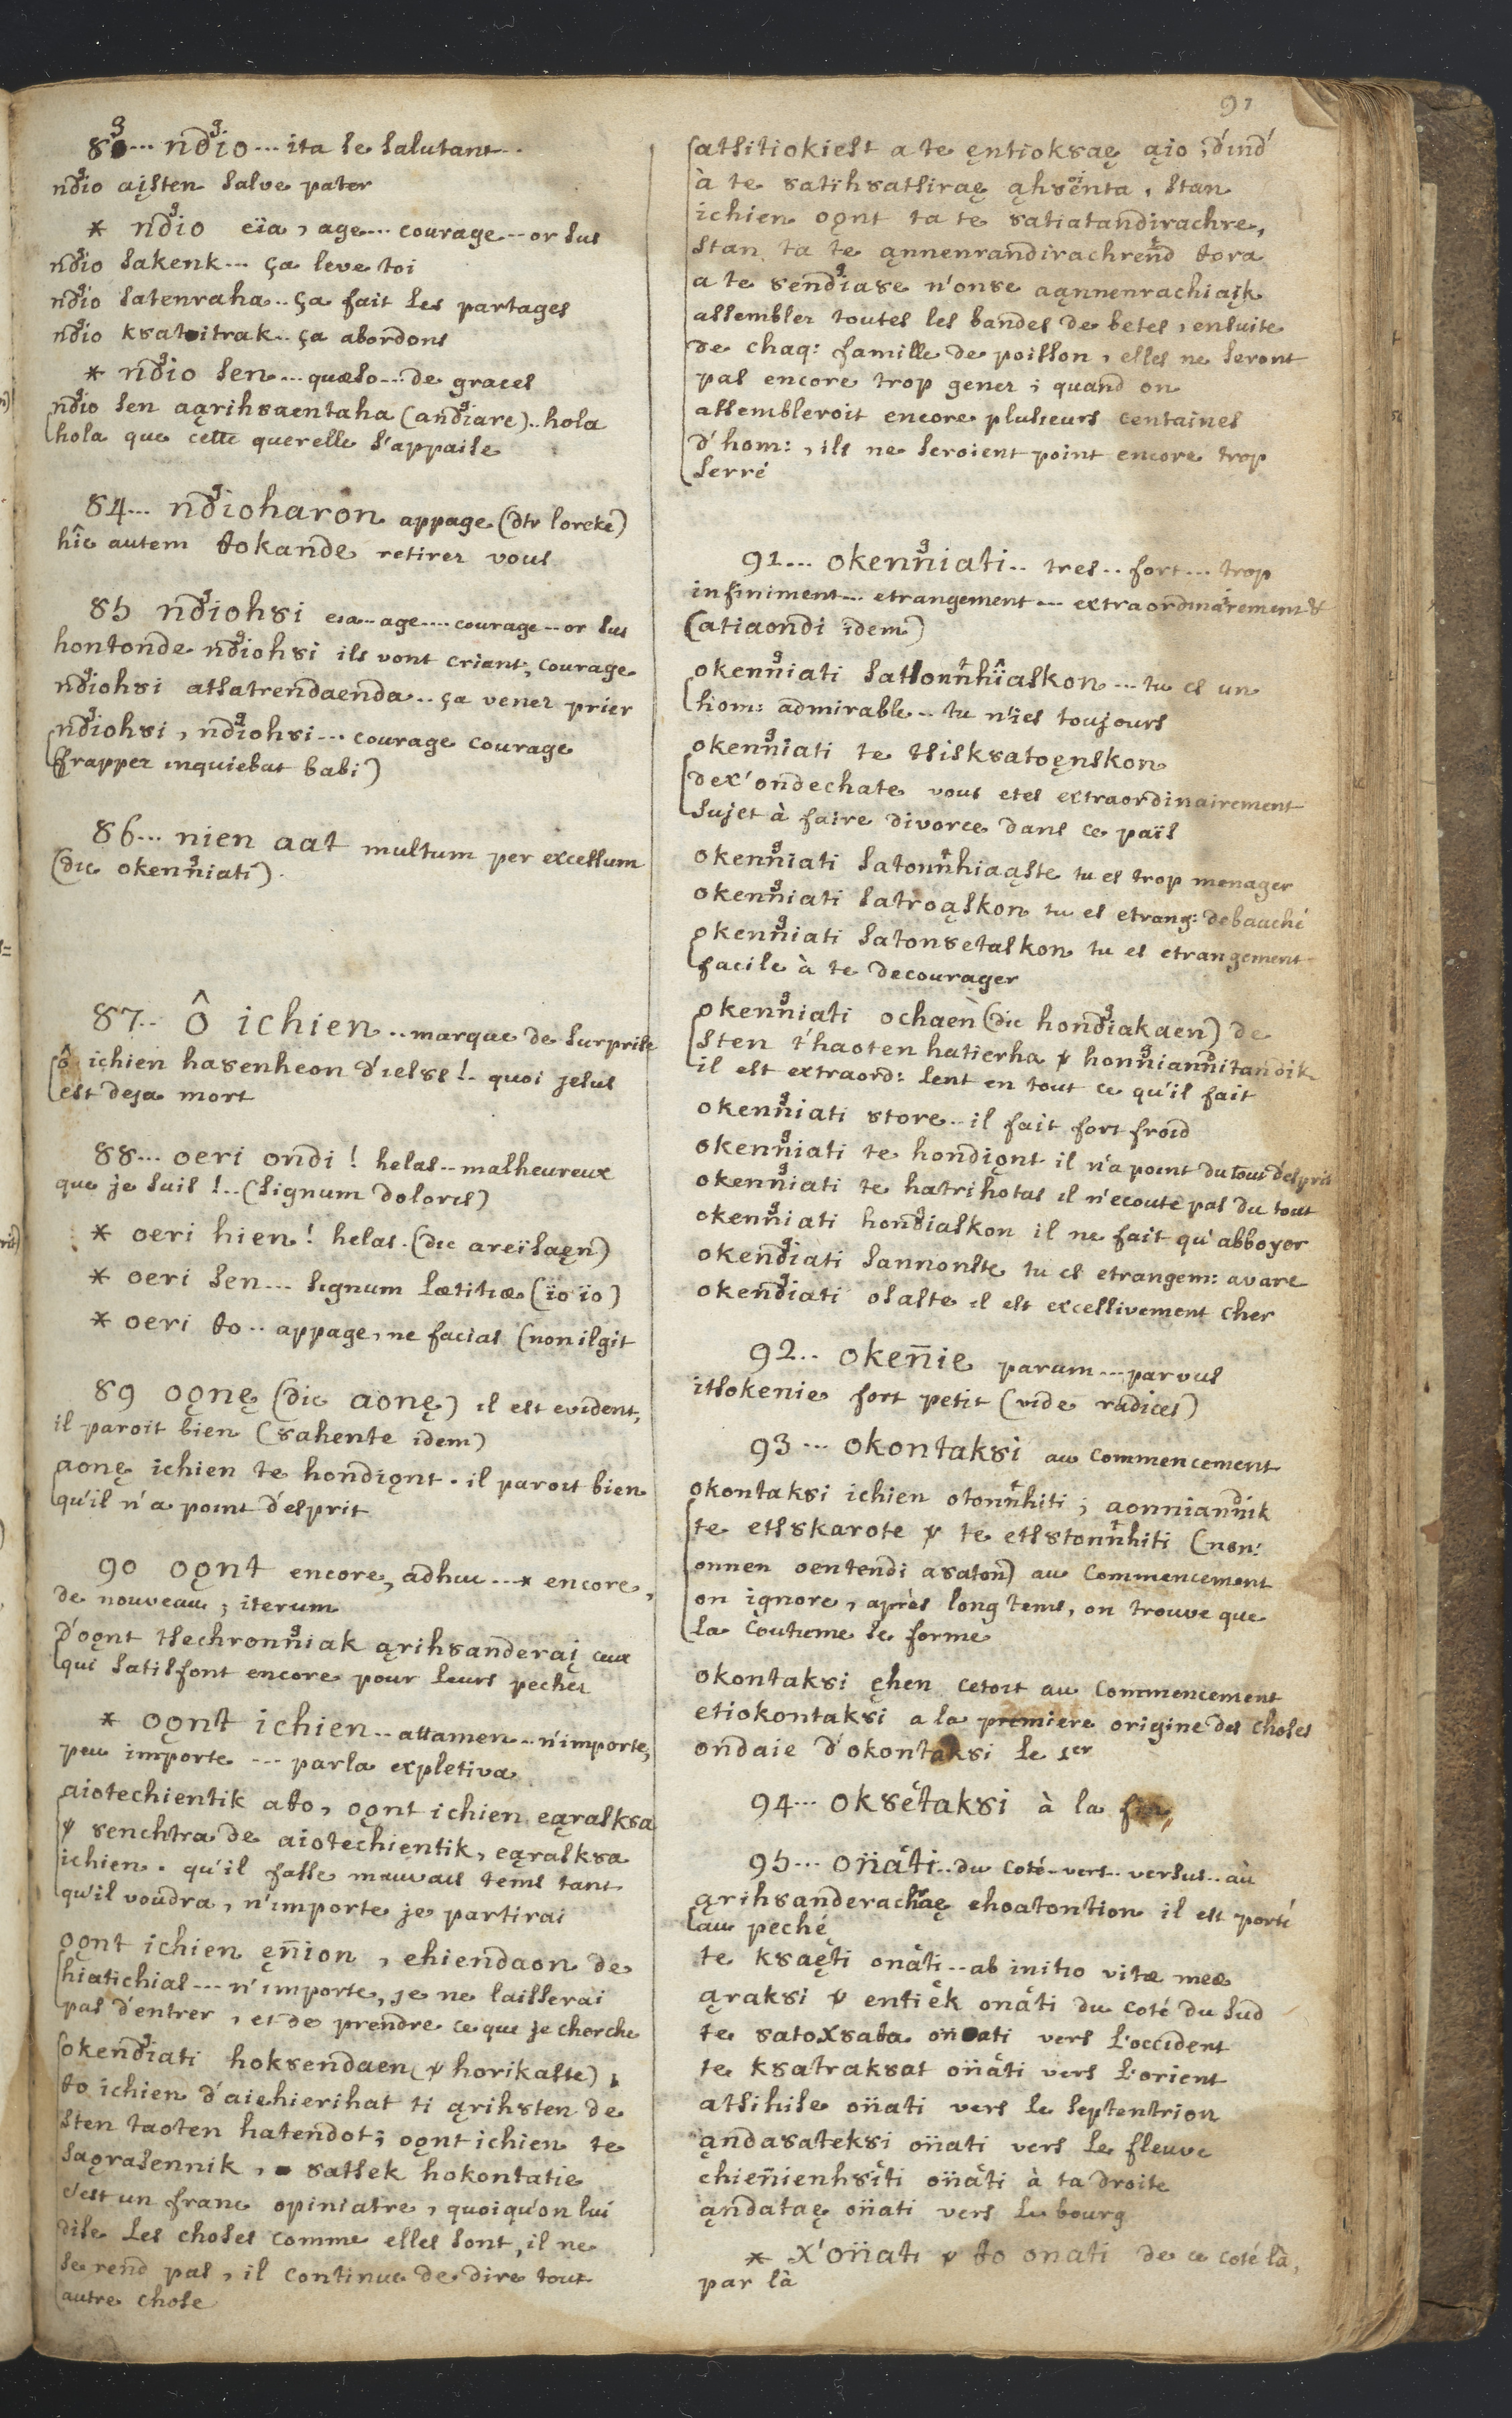 91
83... nd͞io... ita se salutant..
nd͞io aįsten salve pater
* nd͞io eïa, age... courage... or sus
nd͞io sakenk... ça leve toi
nd͞io satenraha.. ça fait les partages
nd͞io ksatoitrak.. ça abordons
* nd͞io sen... quæso... de graces
nd͞io sen aąrihȣaentaha (and͞iare).. hola
hola que cette querelle s'appaise
84... nd͞ioharon appage (dtr loreke)
hîc autem ŧokande retirez vous
85 nd͞iohȣi eia.. age.... courage.. or sus
hontonde nd͞iohȣi ils vont criant, courage
nd͞iohȣi atsatrendaenda.. ça venez prier
nd͞iohȣi, nd͞iohȣi... courage courage
frappez inquiebat babi)
86... nien aat multum per excessum
(dic okenn͞iati).
87.. Ô ichien.. marque de surprise
ô ichien haȣenheon d'iesȣs!.. quoi jesus
est deja mort
88... oeri ondi! helas.. malheureux
que je suis!.. (signum doloris)
* oeri hien! helas. (dic areïsaęn)
* oeri sen... signum lætitiæ (ïo ïo)
* oeri ŧo.. appage, ne facias (non ilgit
89 oǫnę (dic aonę) il est evident,
il paroit bien (ȣahente idem)
aonę ichien te hondiǫnt. il paroit bien
qu'il n'a point d'esprit
90 oǫnt encore, adhuc... * encore,
de nouveau; iterum
d'oǫnt tsechronn͞iak ąrihȣanderaį ceux
qui satisfont encore pour leurs pechez
* oǫnt ichien.. attamen.. n'importe,
peu importe ... parla expletiva
aiotechientik aŧo, oǫnt ichien eąraskȣa
ꝟ ȣenchtra de aiotechientik, eąraskȣa
ichien. qu'il fasse mauvais tems tant
qu'il voudra, n'importe je partirai
oǫnt ichien ęn͞ion, ehiendaon de
hiatichias... n'importe, je ne laisserai
pas d'entrer, et de prendre ce que je cherche
okend͞iati hokȣendaen (ꝟ horikaste),
ŧo ichien d'aiehierihat ti ąrihȣten de
sten taoten hatendot; oǫnt ichien te
saǫrasennik, ȣatsek hokontatie
c'est un franc opiniatre, quoiqu'on lui
dise les choses comme elles sont, il ne
se rend pas, il continue de dire tout
autre chose
atsitiokiest a te ęntiokȣaę ąio; d'ind'
à te ȣatihȣatsiraę ąhȣenta, stan
ichien oǫnt ta te ȣatiatandirachre,
stan ta te ąnnenrandirachrend ŧora
a te ȣend͞iaȣe n'onȣe aąnnenrachiaįk
assembler toutes les bandes de betes, ensuite
de chaq: famille de poisson, elles ne seront
pas encore trop genez; quand on
assembleroit encore plusieurs centaines
d'hom:, ils ne seroient point encore trop
serré
91... okenn͞iati.. tres.. fort... trop
infiniment... etrangement... extraordinairement &
(atiaondi idem)
okenn͞iati satsonnhïaskon... tu es un
hom: admirable.. tu n'ies toujours
okenn͞iati te tsiskȣatoęnskon
dex'ondechate vous etes extraordinairement
sujet à faire divorce dans ce païs
okenn͞iati satonnhiaąste tu es trop menager
okenn͞iati satroąskon tu es etrang: debauché
okenn͞iati satonȣetaskon tu es etrangement
facile à te decourager
okenn͞iati ochaen (dic hond͞iakaen) de
sten t'haoten hatierha ꝟ honn͞iannitandik
il est extraord: lent en tout ce qu'il fait
okenn͞iati ȣtore.. il fait fort froid
okenn͞iati te hondiǫnt il n'a point du tout d'esprit
okenn͞iati te hatrihotas il n'ecoute pas du tout
okenn͞iati hond͞iaskon il ne fait qu'abboyer
okend͞iati sannonste tu es etrangem: avare
okend͞iati osaste il est excessivement cher
92.. oken͞ie parum... parvus
itsokenie fort petit (vide radices)
93... okontakȣi au commencement
okontakȣi ichien otonnhiti; aonniannik
te etsskarote ꝟ te etsstonnhiti (non:
onnen oentendi aȣaton) au commencement
on ignore, après long tems, on trouve que
la coutume se forme
okontakȣi ęhen cetoit au commencement
etiokontakȣi a la premiere origine des choses
ondaie d'okontakȣi le 1er
94... okȣetakȣi à la fin
95... on͞ati.. du coté.. vers.. versus.. au
ąrihȣanderachaę ehoatontion il est porté
au peché
te kȣaęti onati.. ab initio vitæ meæ
ąrakȣi ꝟ entiek onati du coté du sud
te ȣatoxȣaŧa on͞ati vers l'occident
te kȣatrakȣat on͞ati vers l'orient
atsihise on͞ati vers le septentrion
ąndaȣatekȣi on͞ati vers le fleuve
chien͞ienhȣiti on͞ati à ta droite
ąndataę on͞ati vers le bourg
* x'on͞ati ꝟ ŧo onati de ce coté là,
par là